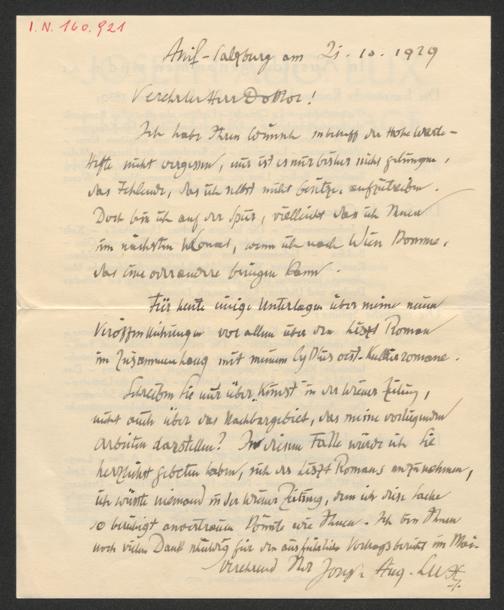 I.N. 160.921
Anif-Salzburg am 21.10.1929
Verehrter Herr Doktor!
Ich habe Ihren Wunsch inbetreff der Hohe Warte-
hefte nicht vergessen, nur ist es mir bisher nicht gelungen,
das Fehlende, das ich selbst nicht besitze, aufzutreiben.
Doch bin ich auf der Spur, vielleicht das ich Ihnen
im nächsten Monat, wenn ich nach Wien komme,
das eine oder andere bringen kann.
Für heute einige Unterlagen über meine neuen
Veröffentlichungen vor allem über den Liszt Roman
im Zusammenhang mit meinem Cyklus oest. Kulturromane.
Schreiben Sie nur über Kunst in der Wiener Zeitung,
nicht auch über das Nachbargebiet, das meine vorliegenden
Arbeiten darstellen? In diesem Falle würde ich Sie
herzlichst gebeten haben, sich des Liszt Romans anzunehmen,
ich wüsste niemand in der Wiener Zeitung, dem ich diese Sache
so beruhigt anvertrauen könnte wie Ihnen. Ich bin Ihnen
noch vielen Dank schuldig für den ausführlichen Vortragsbericht im Mai.
Verehrend Ihr Joseph Aug. Lux